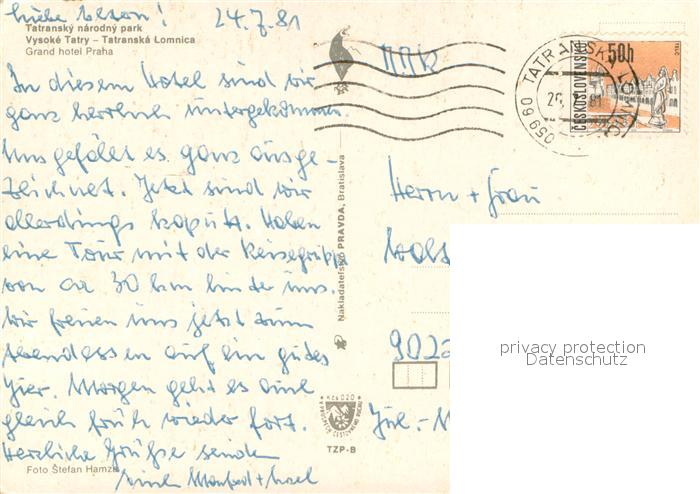 24.7.81
Tatranský národný park
Vysoké Tatry – Tatranská Lomnica
Grand hotel Praha
In diesem Hotel sind wir
ganz herrlich untergekommen.
Uns gefällt es ganz ausge-
zeichnet. Jetzt sind wir
allerdings kaputt. Haben
eine Tour mit der Reisegruppe
von ca 30 km hinter uns.
Wir freuen uns jetzt zum
Abendessen auf ein gutes
Bier. Morgen geht es auch
gleich früh wieder fort.
Herzliche Grüße senden
Euch Manfred +
Foto Štefan Hamza
Nakladateľstvo PRAVDA, Bratislava
Kčs 0,20
TZP-B
059 60 TATRANSKÁ LOMNICA
50h
ČESKOSLOVENSKO
Herrn + Frau
902
privacy protection
Datenschutz